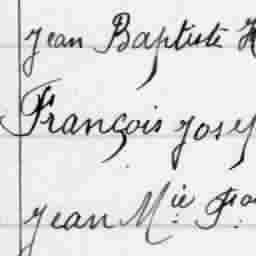 Jean Baptiste
François
Jean M.ie